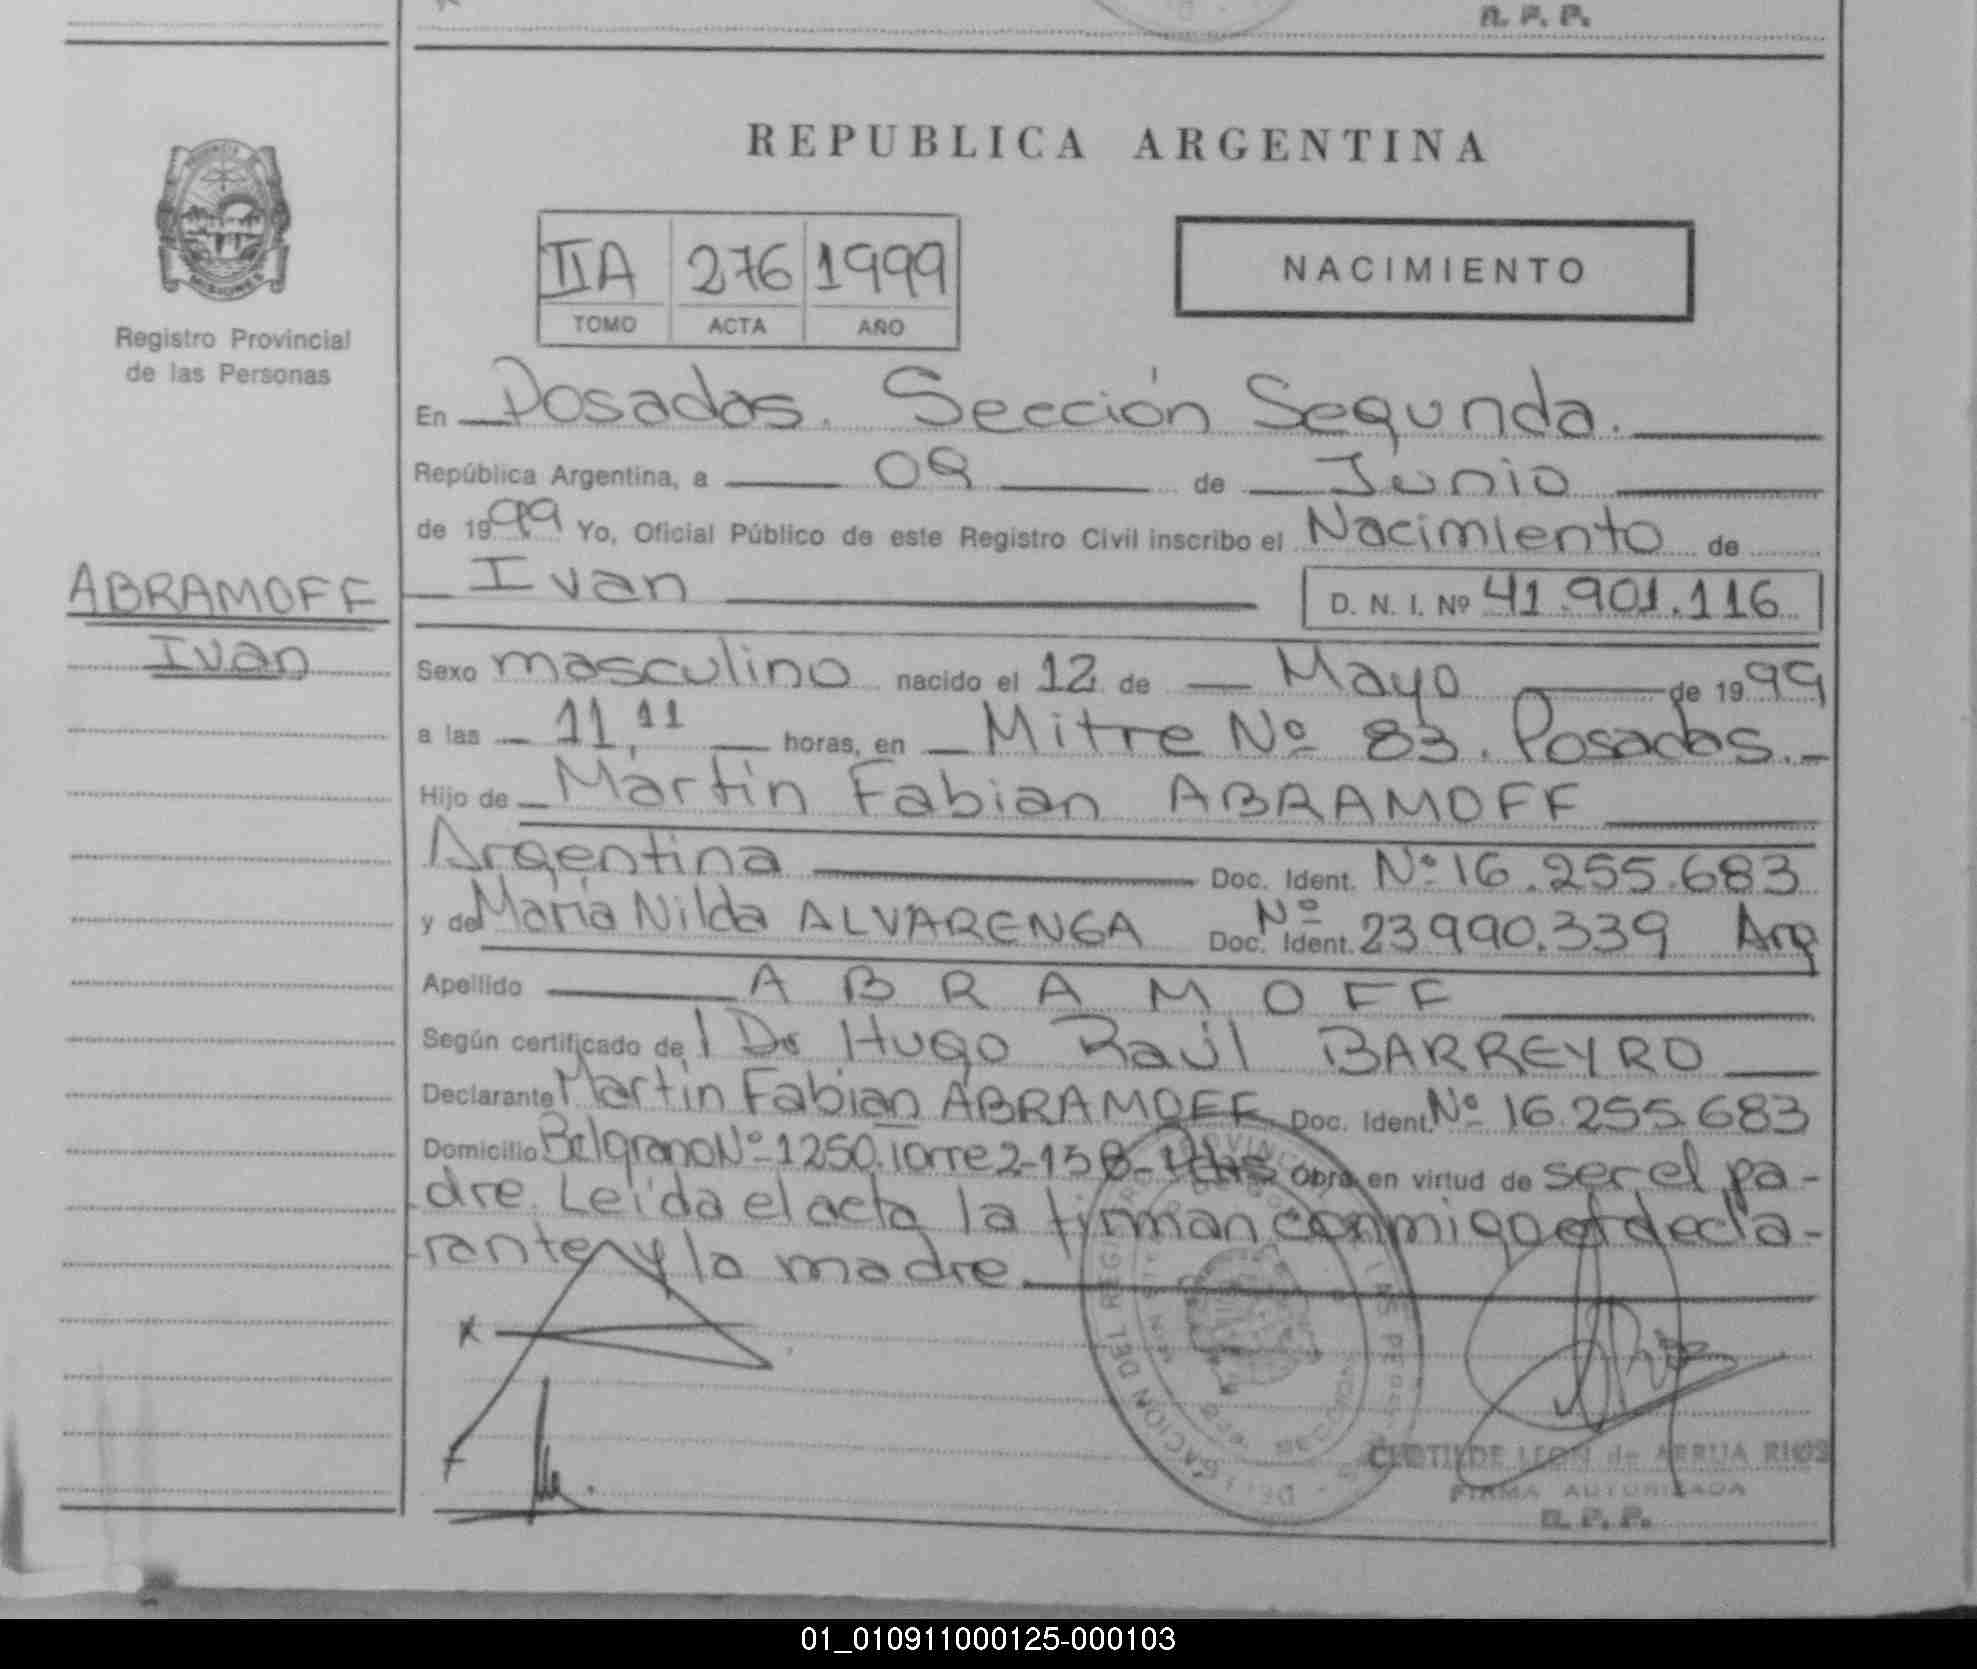 R. P. P.
REPUBLICA ARGENTINA
IIA 276 1999
TOMO ACTA AÑO
NACIMIENTO
MISIONES
Registro Provincial
de las Personas
En Posadas. Sección Segunda.
República Argentina, a 09 de Junio
de 1999 Yo, Oficial Público de este Registro Civil inscribo el Nacimiento de
Ivan D. N. I. Nº 41.901.116
ABRAMOFF
Ivan
Sexo masculino nacido el 12 de Mayo de 1999
a las 11,11 horas, en Mitre Nº 83. Posadas.-
Hijo de Martín Fabian ABRAMOFF
Argentina Doc. Ident. Nº 16.255.683
y de María Nilda ALVARENGA Doc. Ident. Nº 23.990.339 Arg
Apellido ABRAMOFF
Según certificado de l Dr Hugo Raúl BARREYRO
Declarante Martín Fabian ABRAMOFF Doc. Ident. Nº 16.255.683
Domicilio Belgrano Nº 1250. Torre 2-13 Obra en virtud de ser el pa-
dre. Leída el acta la firman conmigo el decla-
rante y la madre
CLOTILDE LEON de ARRUA RIOS
FIRMA AUTORIZADA
R. P. P.
01_010911000125-000103